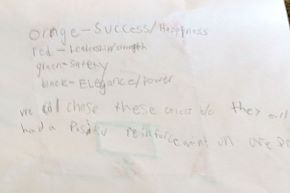 ornge-Success/Happness
red-
green-Safety
black-Elegance/power
we all chose these colors b/c they all
had a Positiv reinforcement on are